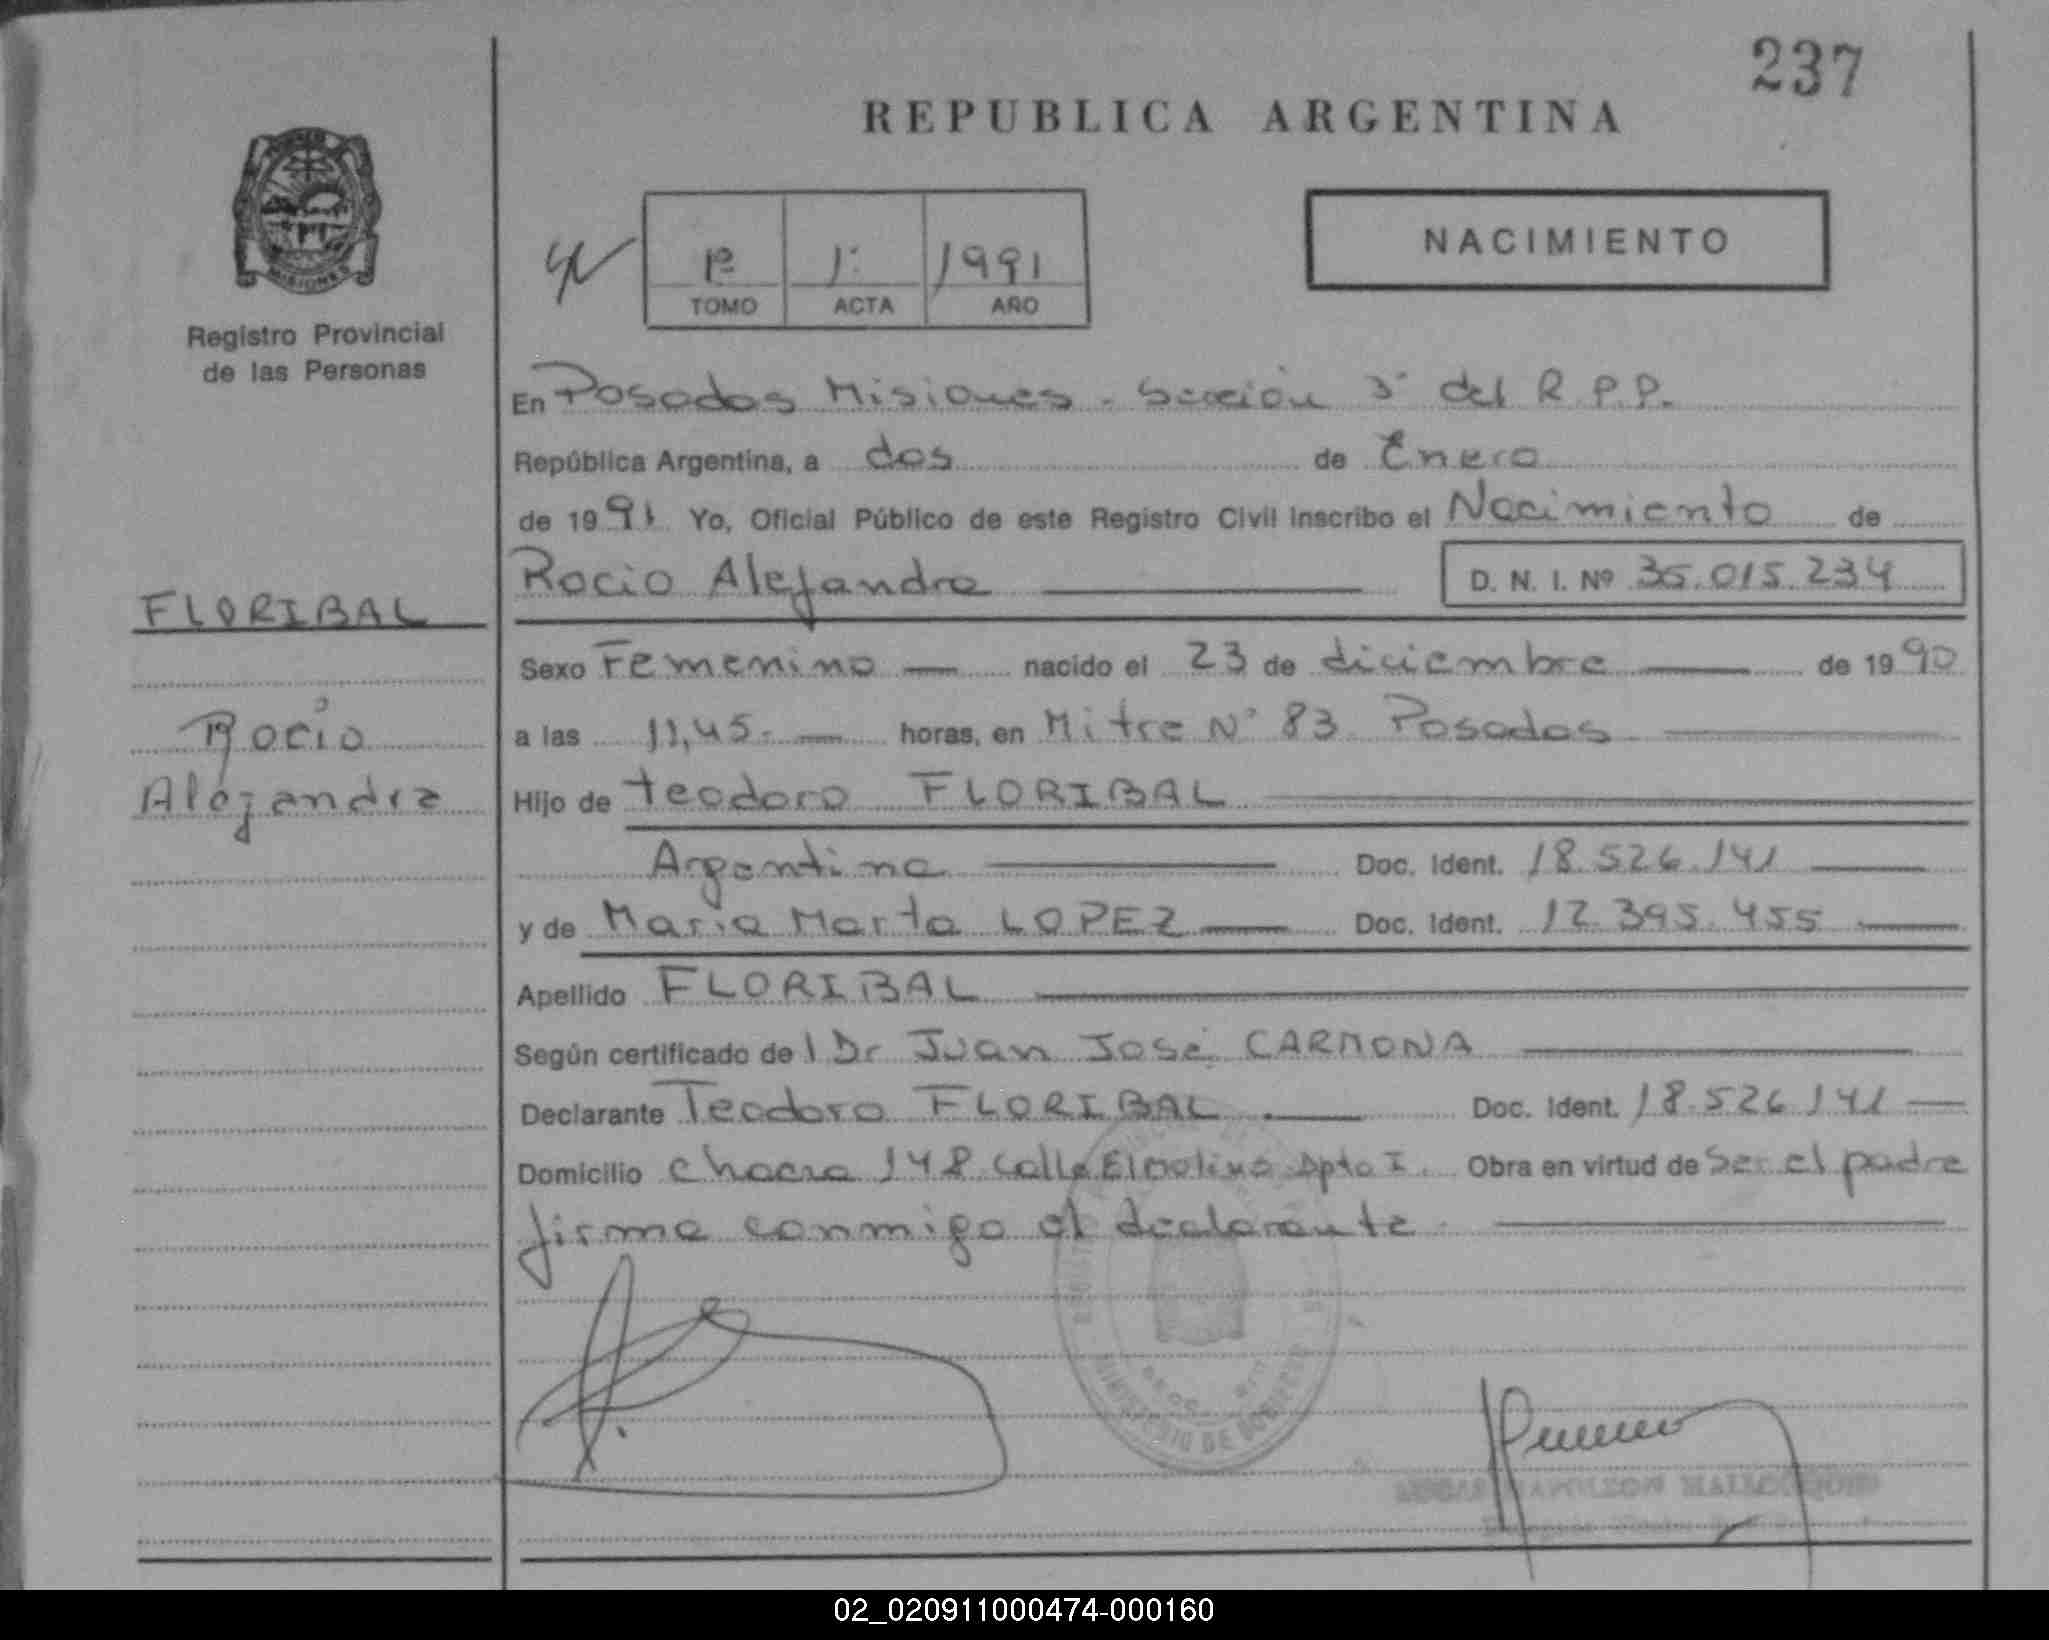 237
REPUBLICA ARGENTINA
NACIMIENTO
1º 1º 1991
TOMO ACTA AÑO
MISIONES
Registro Provincial
de las Personas
En Posadas Misiones - Sección 3º del R.P.P.
República Argentina, a dos de Enero
de 1991 Yo, Oficial Público de este Registro Civil inscribo el Nacimiento de
Rocio Alejandra D. N. I. Nº 35.015.234
FLORIBAL
Rocio
Alejandra
Sexo Femenino nacido el 23 de diciembre de 1990
a las 11,45- horas, en Mitre Nº 83 Posadas
Hijo de Teodoro FLORIBAL
Argentina Doc. Ident. 18.526.141
y de Maria Marta LOPEZ Doc. Ident. 12.395.455
Apellido FLORIBAL
Según certificado de l Dr Juan José CARMONA
Declarante Teodoro FLORIBAL Doc. Ident. 18.526.141
Domicilio Chacra 148 Calle El Dpto I. Obra en virtud de Ser el padre
firma conmigo el declarante
MINISTERIO DE GOBIERNO
02_020911000474-000160